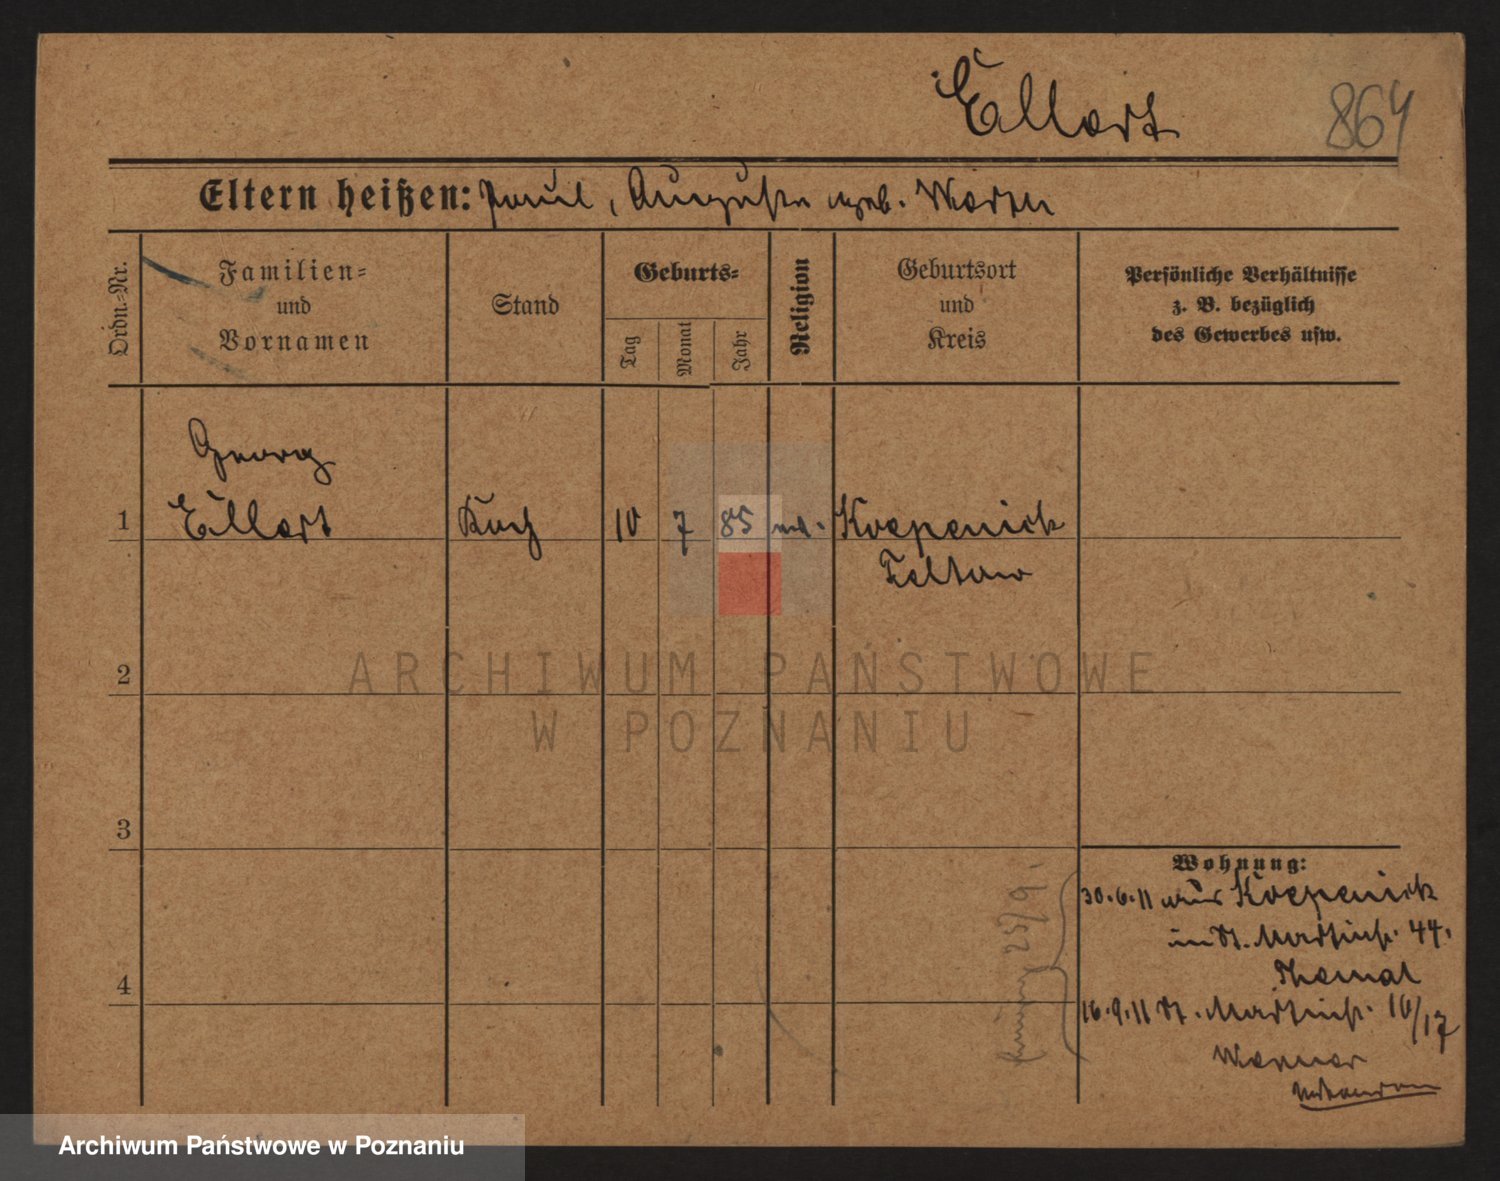 Ellert
864
Eltern heißen: Paul, Auguste geb.
Ordn.=Nr.
Familien=
und
Vornamen
Stand
Geburts=
Tag
Monat
Jahr
Religion
Geburtsort
und
Kreis
Persönliche Verhältnisse
z. B. bezüglich
des Gewerbes usw.
Georg
1 Ellert Koch 10 7 85 Koepenick
Teltow
2
3
4
Wohnung:
30.6.11 aus Koepenick
in St. Martinstr. 44.
16.9.11 St. Martinstr. 16/17
Werner
25/9.
ARCHIWUM PAŃSTWOWE
W POZNANIU
Archiwum Państwowe w Poznaniu